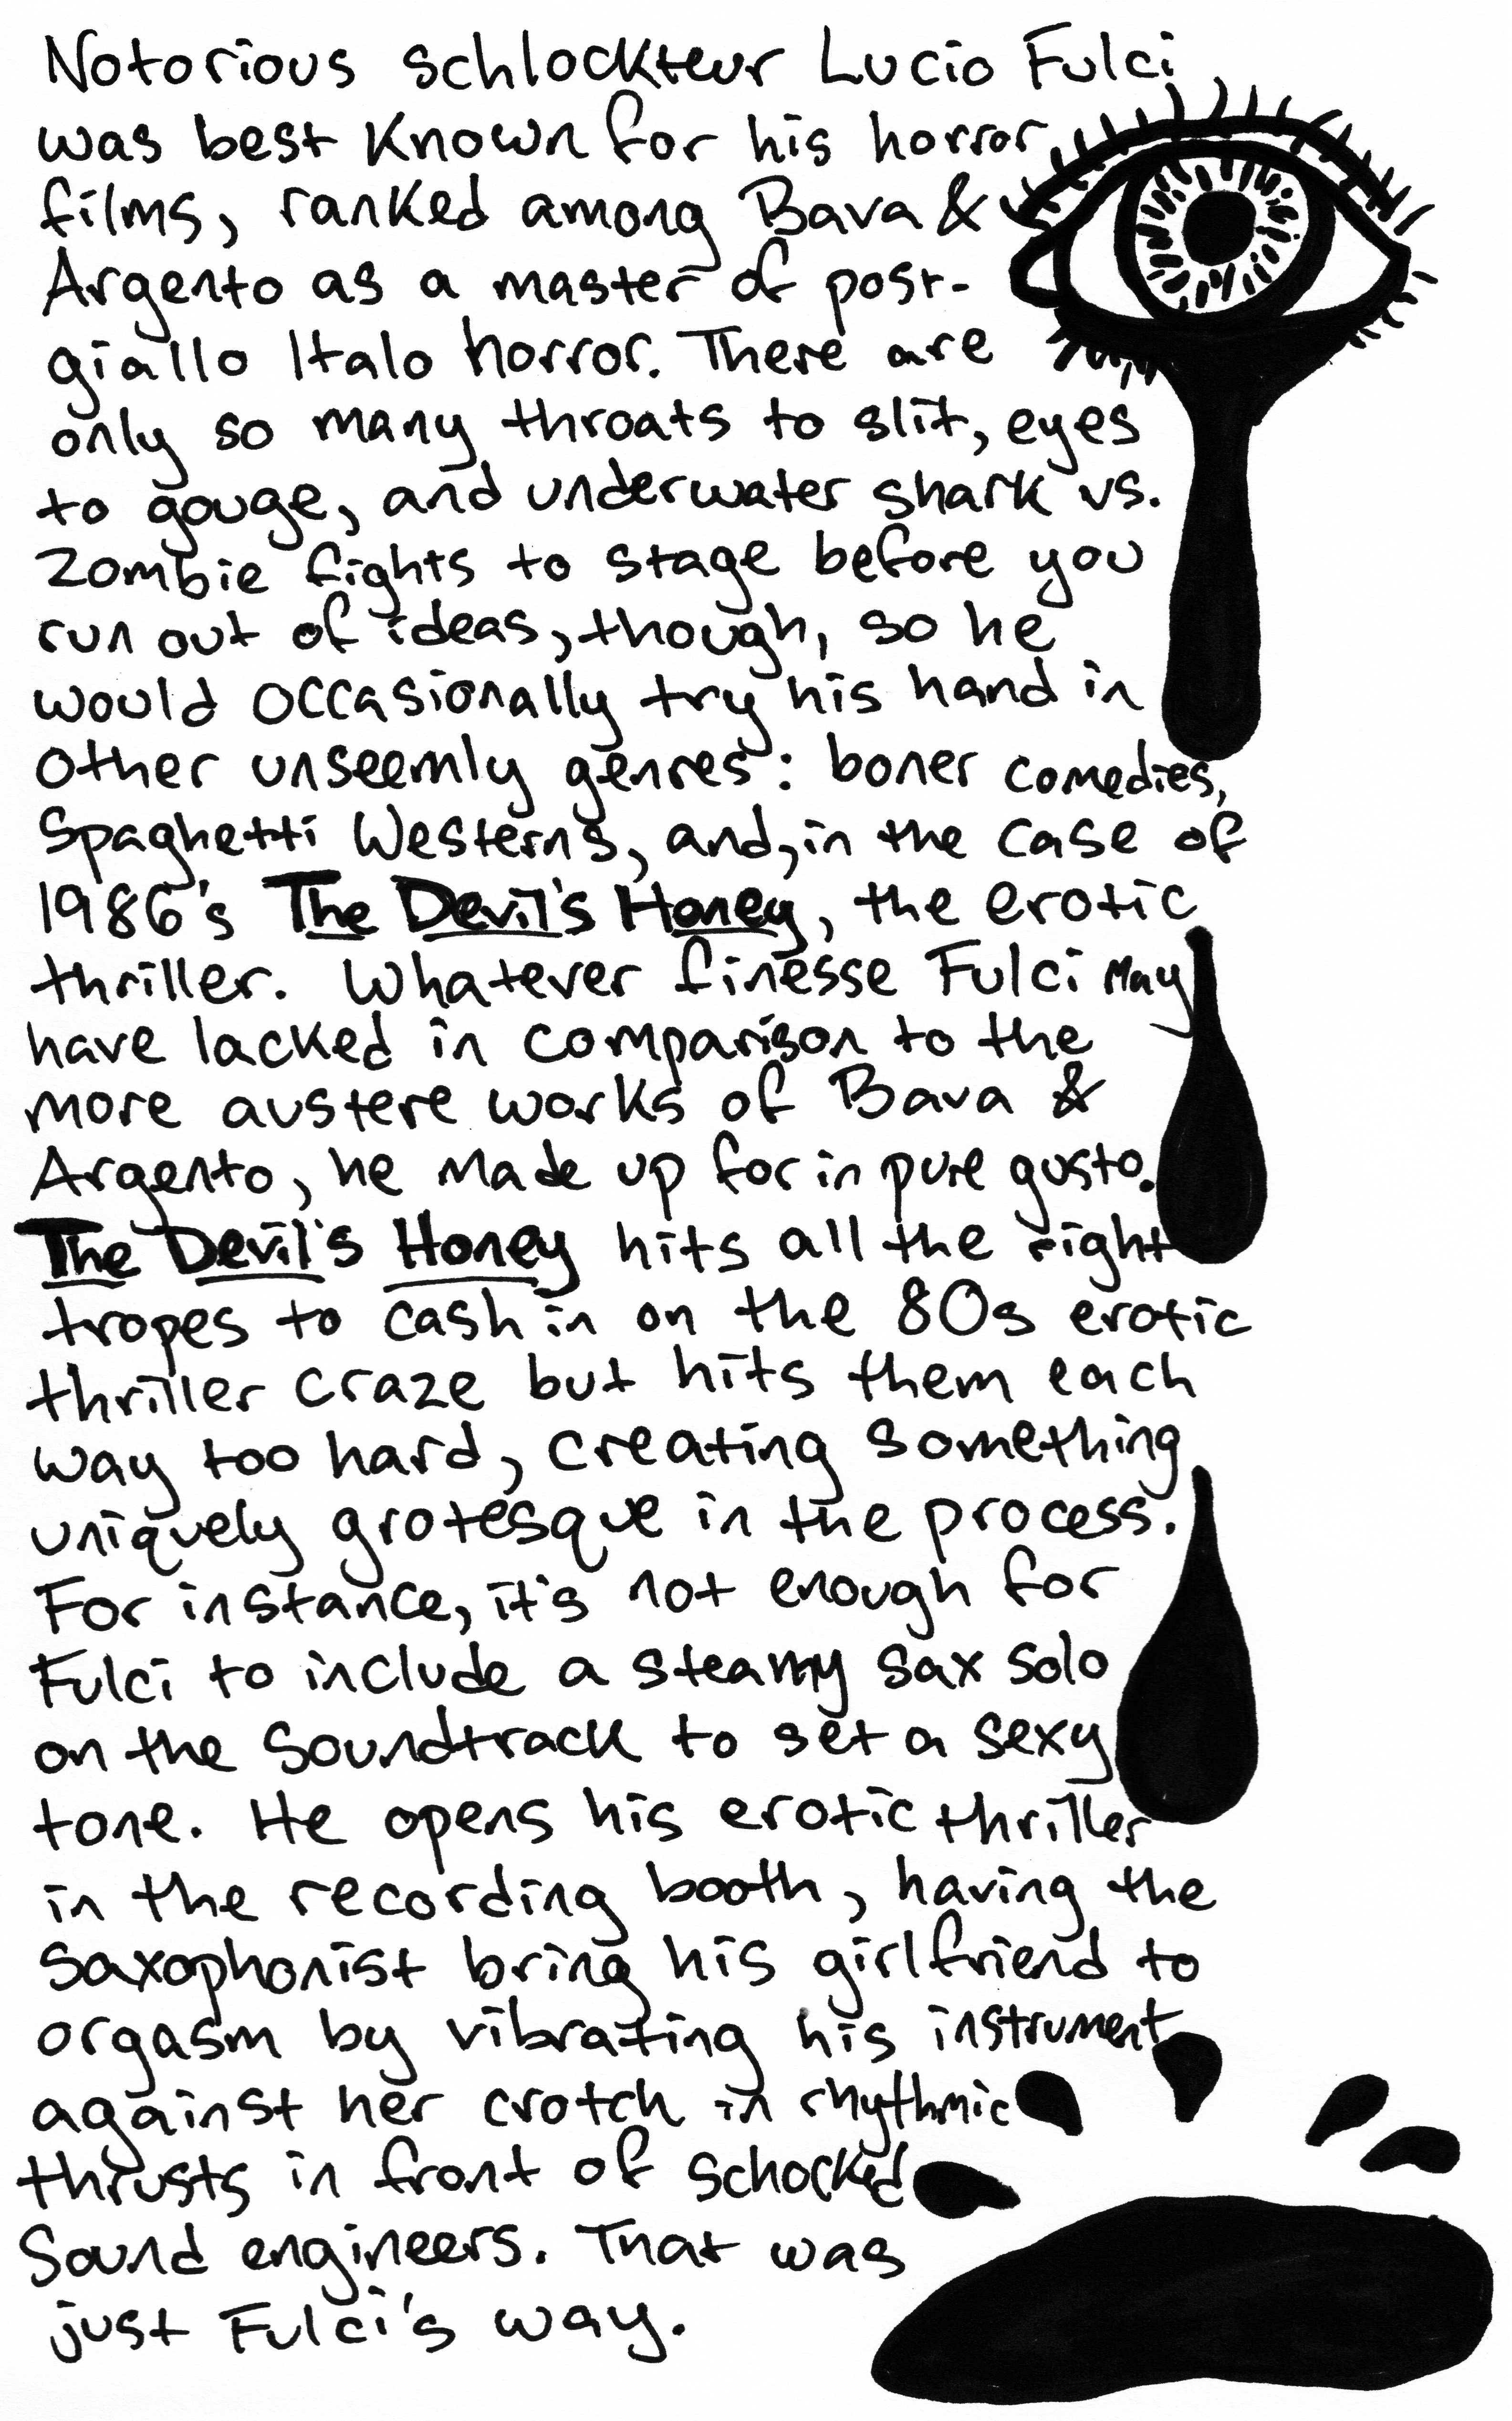 Notorious schlockteur Lucio Fulci
was best known for his horror
films, ranked among Bava &
Argento as a master of post-
giallo Italo horror. There are
only so many throats to slit, eyes
to gouge, and underwater shark vs.
zombie fights to stage before you
run out of ideas, though, so he
would occasionally try his hand in
other unseemly genres: boner comedies,
Spaghetti Westerns, and, in the case of
1986's The Devil's Honey, the erotic
thriller. Whatever finesse Fulci may
have lacked in comparison to the
more austere works of Bava &
Argento, he made up for in pure gusto.
The Devil's Honey hits all the right
tropes to cash in on the 80s erotic
thriller craze but hits them each
way too hard, creating something
uniquely grotesque in the process.
For instance, it's not enough for
Fulci to include a steamy sax solo
on the soundtrack to set a sexy
tone. He opens his erotic thriller
in the recording booth, having the
saxophonist bring his girlfriend to
orgasm by vibrating his instrument
against her crotch in rhythmic
thrusts in front of schocked
sound engineers. That was
just Fulci's way.